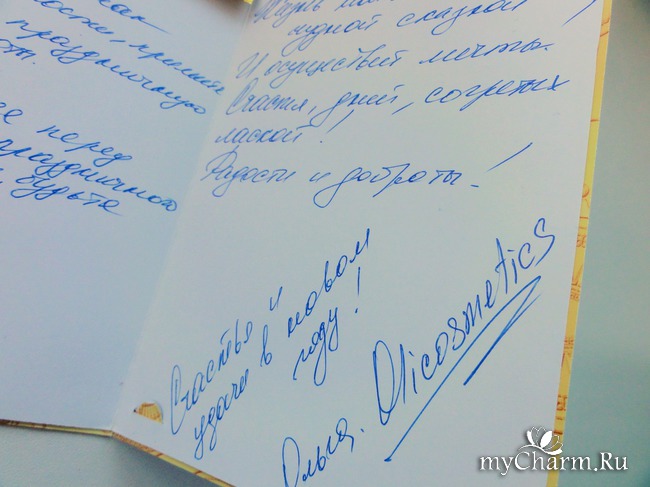 праздничную
перед
праздничного
будьте
чудной сказкой
И осуществит мечты.
Счастья, дней, согретых
лаской!
Радости и доброты!
Счастья и
удачи в новом
году!
Ольга. Olicosmetics
myCharm.Ru